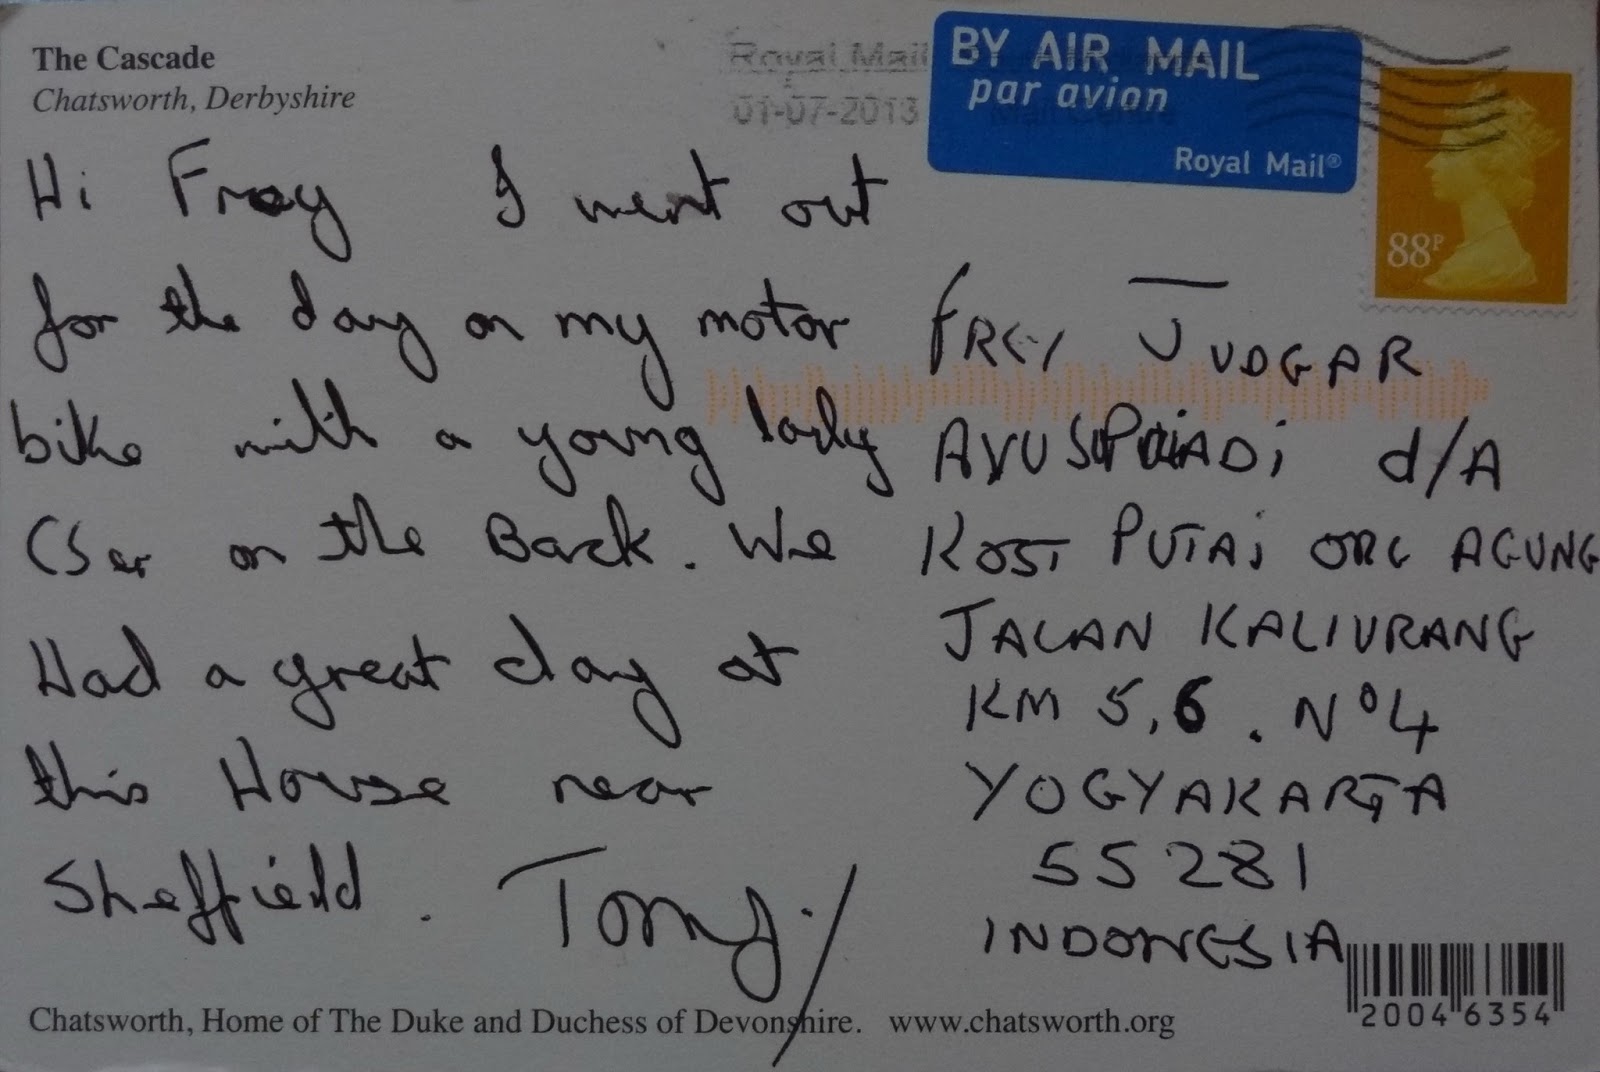 The Cascade
Chatsworth, Derbyshire
Royal Mail
01-07-2013
Mail Centre
BY AIR MAIL
par avion
Royal Mail®
88P
Hi Frey I went out
for the day on my motor
bike with a young lady
on the Back. We
Had a great day at
this House near
Sheffield. Tony
FREY JUDGAR
AYU SUPRIADi d/A
KOST PUTRi ORG AGUNG
JALAN KALIURANG
KM 5,6. Nº4
YOGYAKARTA
55281
INDONESIA
Chatsworth, Home of The Duke and Duchess of Devonshire. www.chatsworth.org
20046354